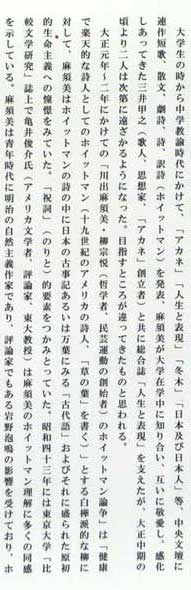 大学生の時から中学教諭時代にかけて、「アカネ」「人生と表現」「冬木」、「日本及び日本人」等、中央文壇に
連作短歌、散文、劇詩、詩、訳詩（ホイットマン）を発表、麻須美が大学在学中に知り合い、互いに敬愛し、感化
しあってきた三井甲之（歌人、思想家、「アカネ」創立者）と共に総合誌「人生と表現」を支えたが、大正中期の
頃より二人は次第に遠ざかるようになった。目指すところが違ってきたものと思われる。
大正元年～二年にかけての「川出麻須美・柳宗悦（哲学者、民芸運動の創始者）のホイットマン論争」は「健康
で楽天的な詩人としてのホイットマン（十九世紀のアメリカの詩人、「草の葉」を書く）」とする白樺派的な柳に
対して、麻須美はホイットマンの詩の中に日本の古事記あるいは万葉にみる「古代語」およびそれに盛られた原初
的生命主義への憧憬をみていた。「祝詞」（のりと）的要素をつかみとっていた。昭和四十三年には東京大学「比
較文学研究」誌上で亀井俊介氏（アメリカ文学者、評論家、東大教授）は麻須美のホイットマン理解に多くの同感
を示している。麻須美は青年時代に明治の自然主義作家であり、評論家でもある岩野泡鳴の影響を受けており、ホ